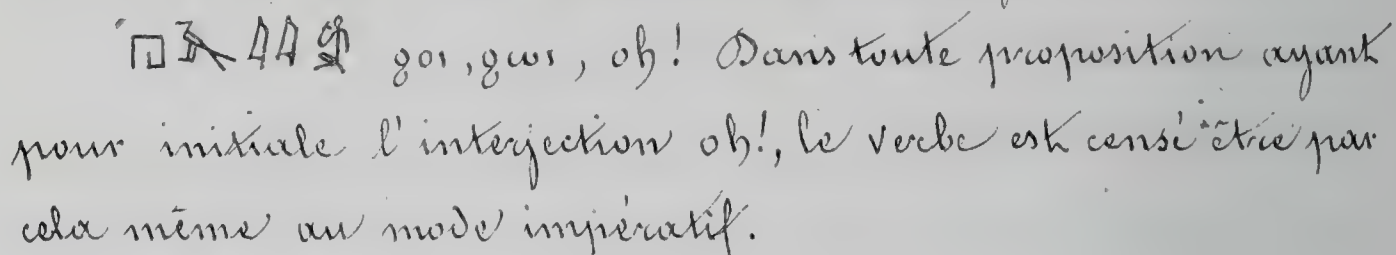 ϩⲟⲓ, ϩⲱⲓ, oh! Dans toute proposition ayant
pour initiale l'interjection oh!, le verbe est censé être par
cela même au mode impératif.